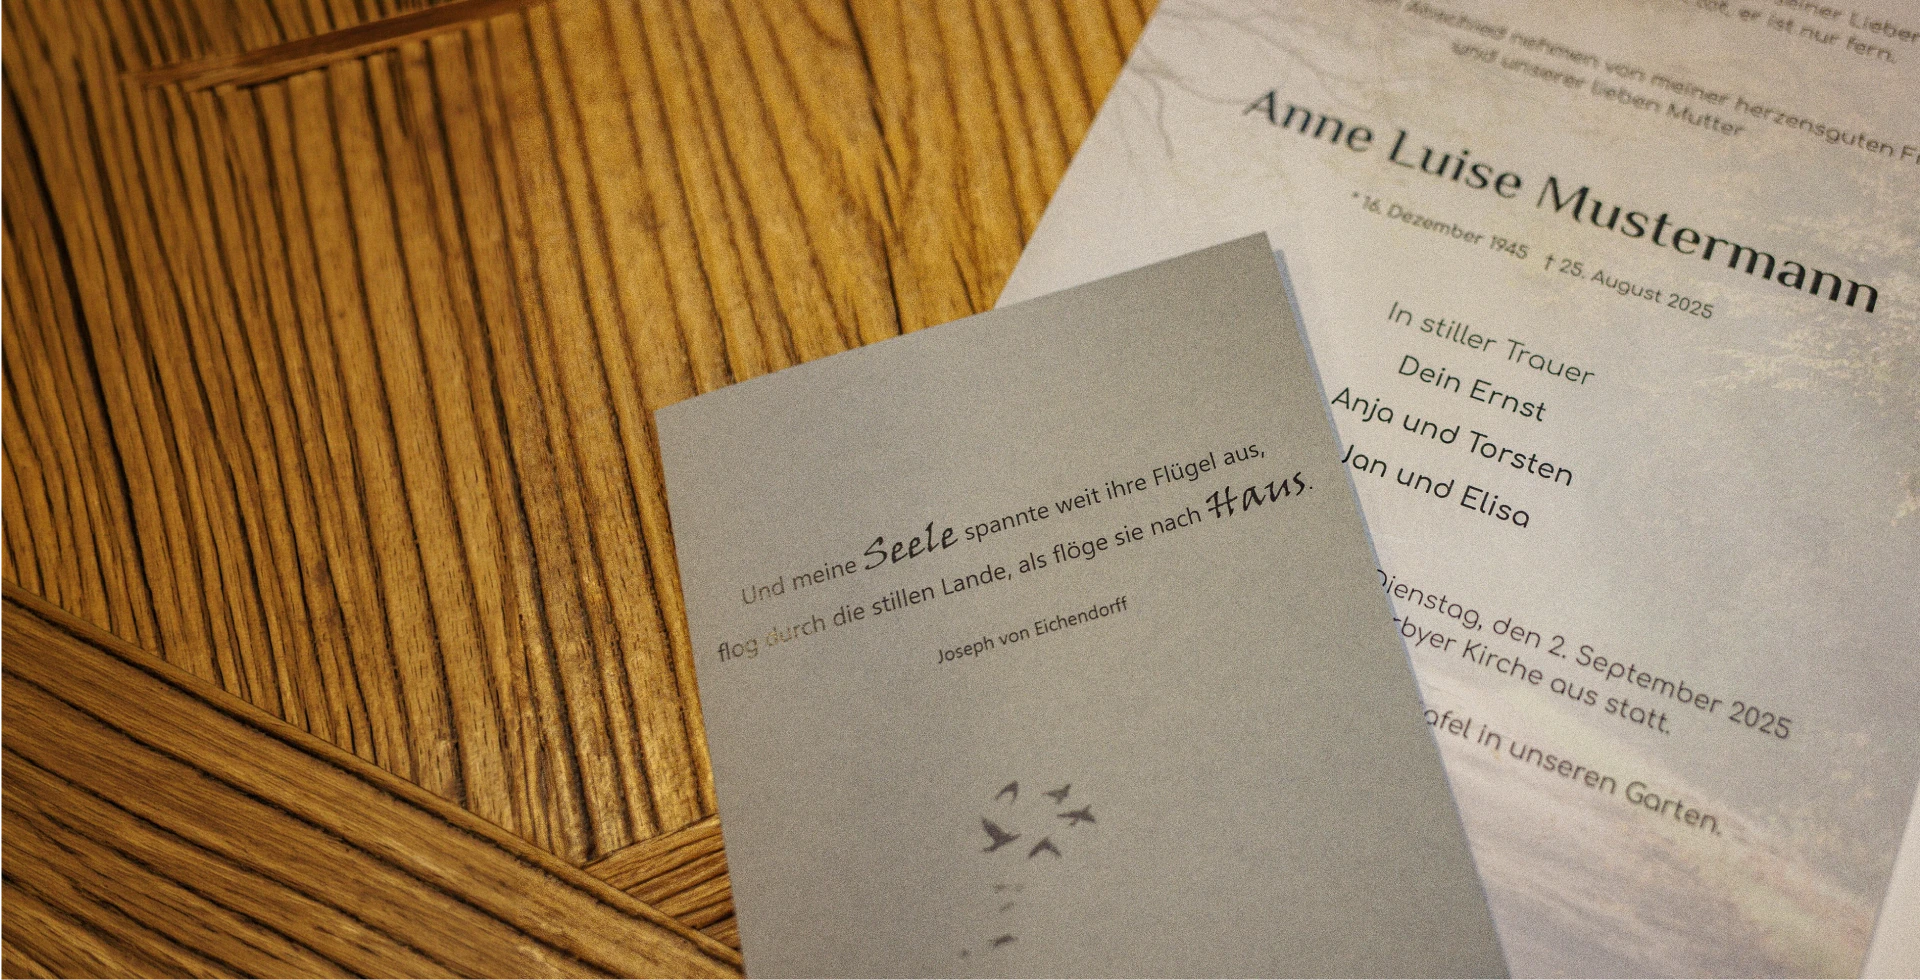 Und meine Seele spannte weit ihre Flügel aus,
flog durch die stillen Lande, als flöge sie nach Haus.
Joseph von Eichendorff
seiner Lieben
tot, er ist nur fern.
Abschied nehmen von meiner herzensguten
und unserer lieben Mutter
Anne Luise Mustermann
* 16. Dezember 1945 † 25. August 2025
In stiller Trauer
Dein Ernst
Anja und Torsten
Jan und Elisa
Dienstag, den 2. September 2025
rbyer Kirche aus statt.
afel in unseren Garten.